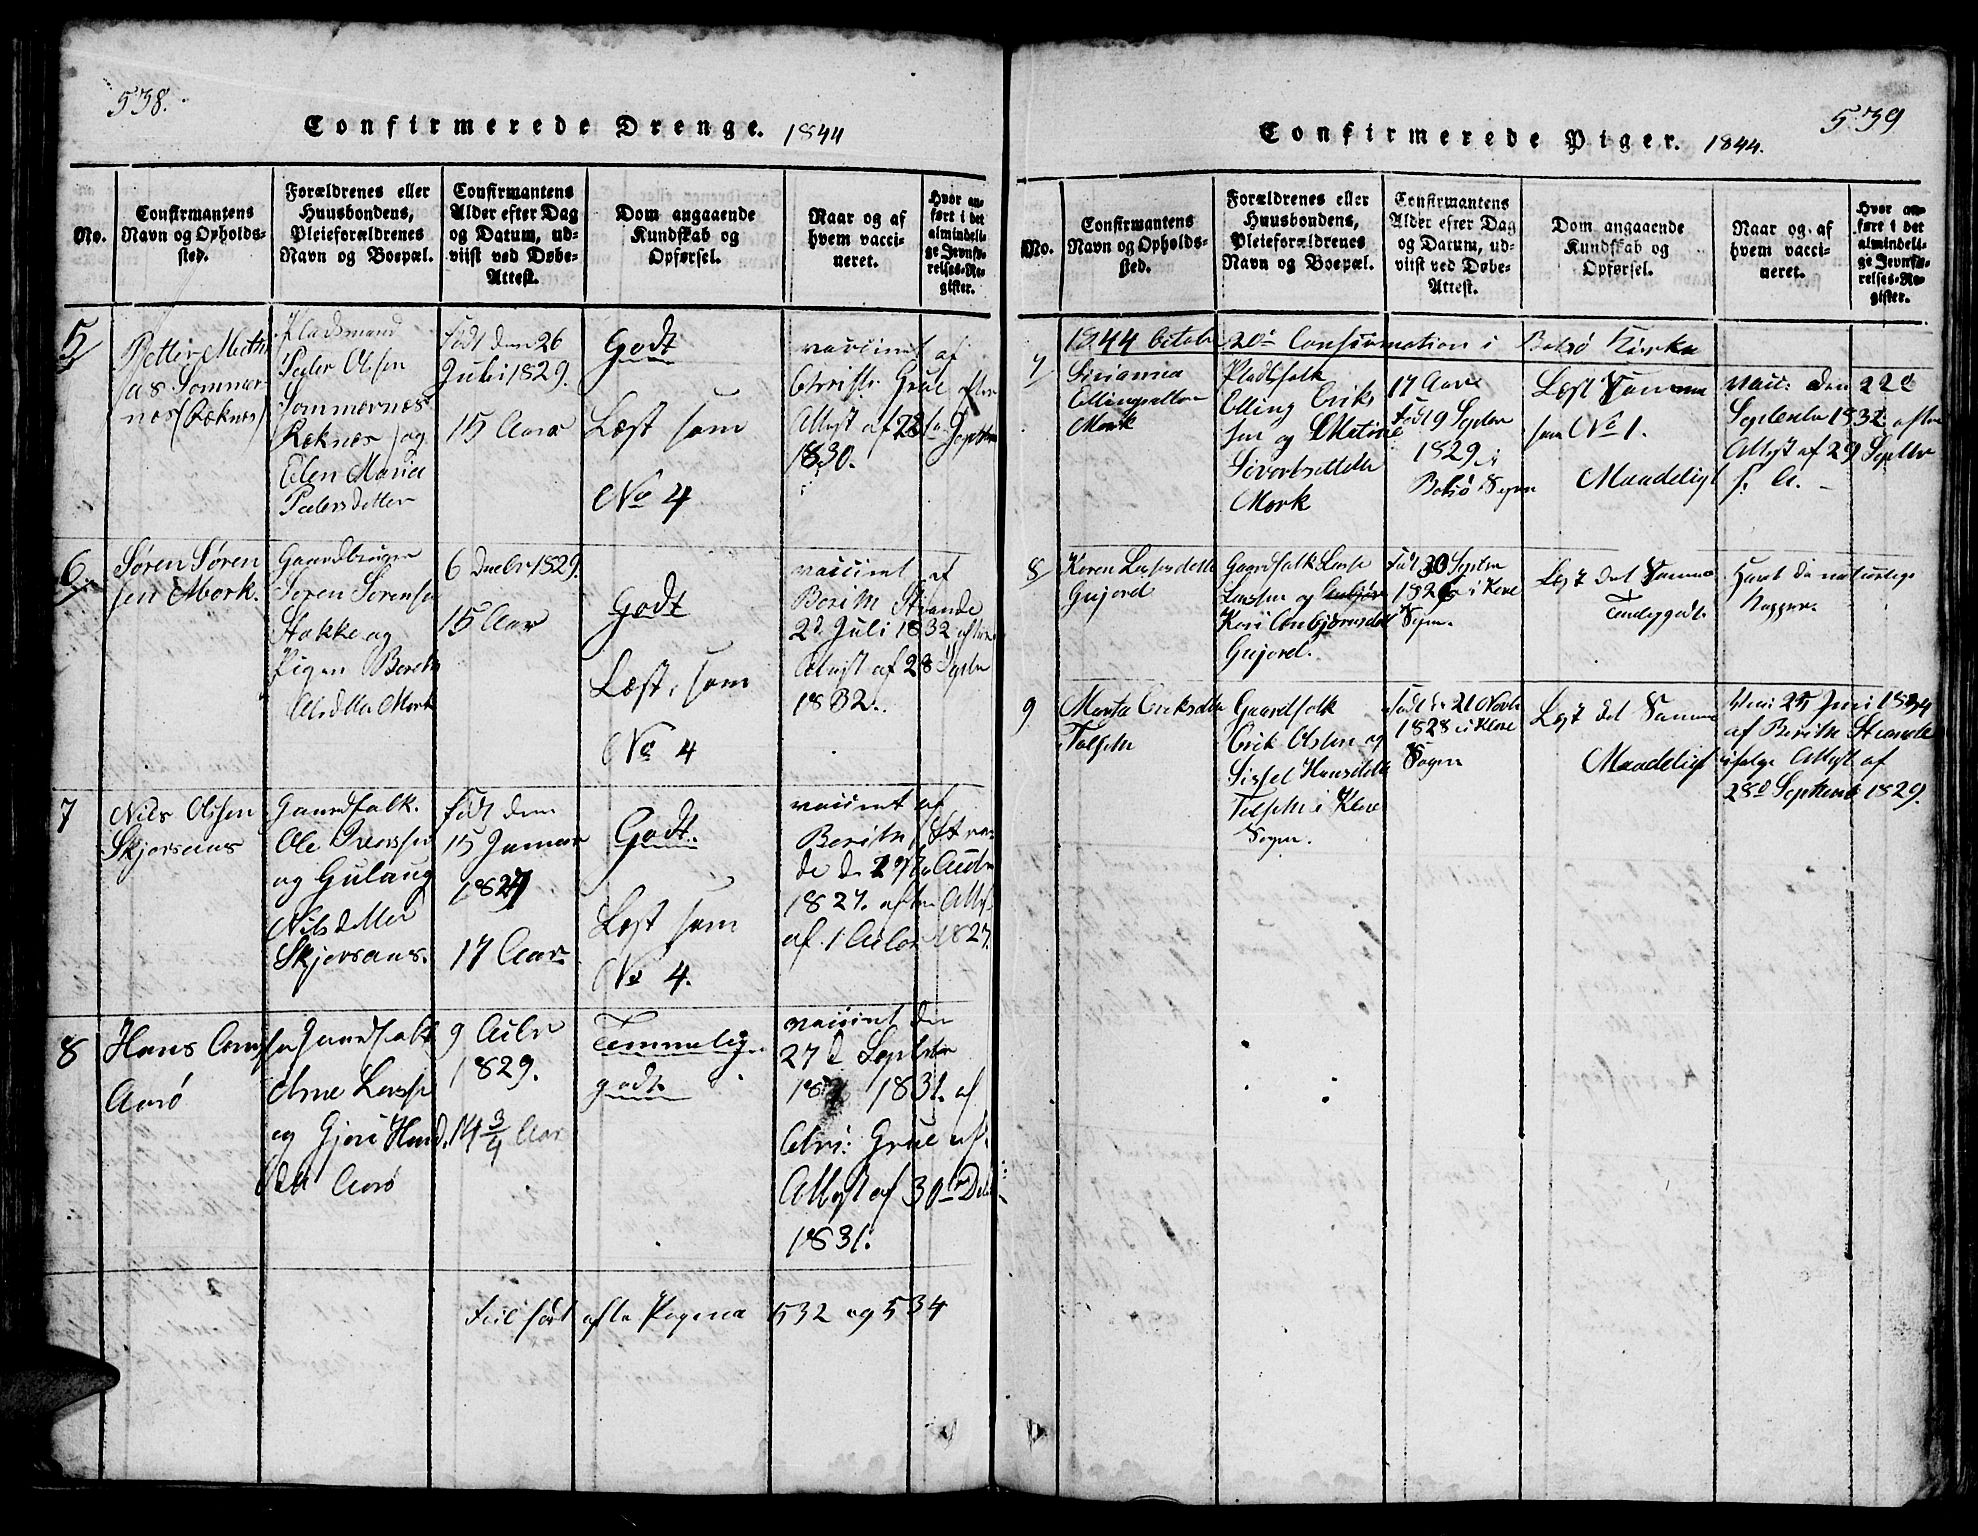 538.
Confirmerede Drenge. 1844
No.
Confirmantens
Navn og Opholds-
sted.
Forældrenes eller
Huusbondens,
Pleieforældrenes
Navn og Boepæl.
Confirmantens
Alder efter Dag
og Datum, ud-
viist ved Døbe-
Attest.
Dom angaaende
Kundskab og
Opførsel.
Naar og af
hvem vacci-
neret.
Hvor an-
ført i det
almindeli-
ge Jevnfø-
relses-Re-
gister.
5
Petter Mathi
as Sommer
næs (Ræknes)
Pladsmand
Peder Olsen
Sommernæs
Ræknæs) og
Elen Maria
Pedersdetter
Født den 26
Juli 1829.
15 Aar
Godt
Læst som
No 4
vaccinert af
Christ: Grue efter
Attest af 22 Septbr
1830.
6
Søren Søren
sen Mork.
Gaardbruger
Søren Sørensen
Stokke og
Pigen Bereth
Mork
6 Decbr 1829.
15 Aar
Godt
Læst som
No 4
vaccinert af
Berith Strande
2d Juli 1832 efter
Attest af 28 Septbr
1832.
7
Nils Olssen
Skjorsans
Gaardfolk.
Ole Iverssen
og Gulaug
Nilsdatter
Skjorsans.
født den
15 Januar
1827
17 Aar
Godt.
Læst som
No 4.
vaccinert af
Berith Stran
de d.
1827. efter Attest
af 1 1827.
8
Hans Arnesen
Aarø
Gaardfolk
Arne Larssen
og Gjøri Hans
datt Aarø
9
1829.
14 3/4 Aar
Temmelig
godt.
vaccinert den
27d Septbr
1831. af
Chri: Grue ef.
Attest af 30
1831.
Feil ført efter Pagina 532 og 534
539
Confirmerede Piger. 1844.
No.
Confirmantens
Navn og Opholds-
sted.
Forældrenes eller
Huusbondens,
Pleieforældrenes
Navn og Boepæl.
Confirmantens
Alder efter Dag
og Datum, ud-
viist ved Døbe-
Attest.
Dom angaaende
Kundskab og
Opførsel.
Naar og af
hvem vacci-
neret.
Hvor an-
ført i det
almindeli-
ge Jevnfø-
relses-Re-
gister.
1844 October 20de Confirmation i Bolsø Kirke
7
Ellingsdatter
Mork
Pladsfolk
Elling Eriks
sen og Metine
Sivertsdatter
Mork
17 Aar
Født 9 Septbr
1829 i
Bolsø Sogn
Læst Samme
som No 1.
Maadeligt
vacc: den 22d
September 1832 efter
Attest af 29 Septbr
s. A.
8
Karen Larsdatter
Gujord
Gaardfolk Lars
Larssen og
Kari Anbjørnsdatt
Gujord.
Født 30 Septbr
1826 i Kleve
Sogn.
Læst det Samme
Temlig godt.
Havt de naturlige
Kopper.
9
Marta Eriksdatter
Gaardfolk
Erik Olssen og
Sissel Hansdatter
i Kleve
Sogn.
født 21 Novbr
1828 i Kleve
Sogn
Læst det Samme
Maadeligt
25 Juni 1829
af Berith Strande
ifølge Attest af
28d September 1829.